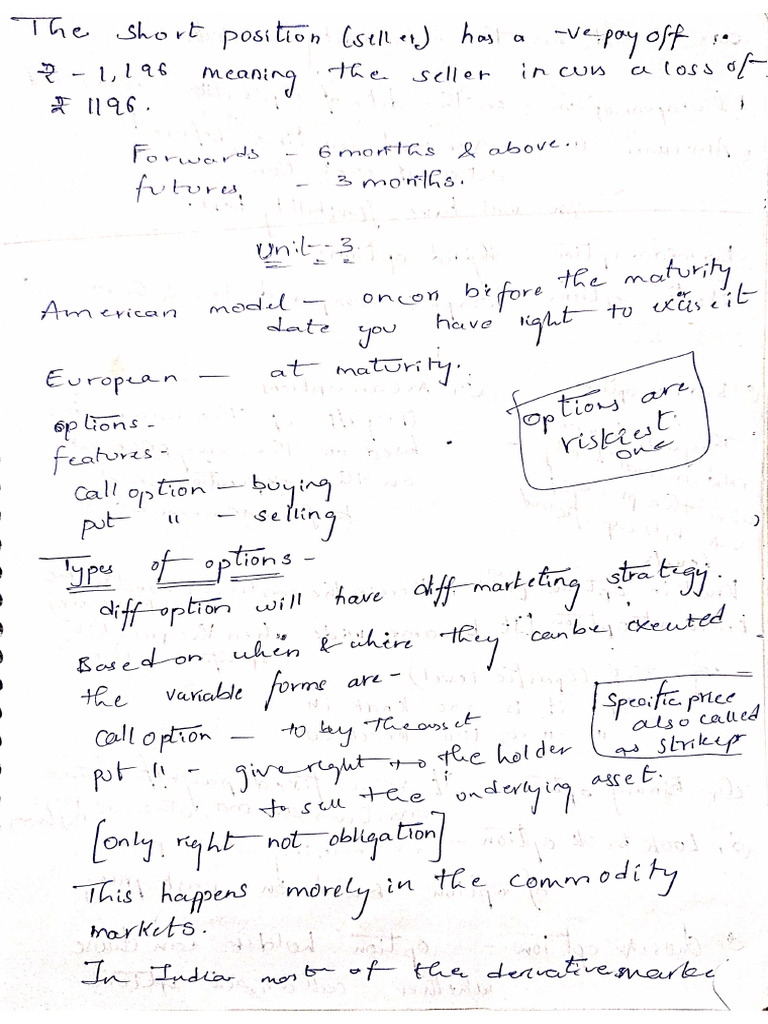 The short position (seller) has a -ve pay off
₹ -1,196 meaning the seller incurs a loss of
₹ 1196.
Forwards - 6 months & above.
futures. - 3 months.
Unit - 3
American model - on or before the maturity
date you have right to exercise it
European - at maturity.
options -
features -
options are
riskiest
one
call option - buying
put " - selling
Types of options -
diff option will have diff marketing strategy.
Based on when & where they can be executed
the variable forms are -
call option - to buy the asset
Specific price
also called
as strike pr
put " - give right to the holder
to sell the underlying asset.
[only right not obligation]
This happens morely in the commodity
markets.
In India most of the derivative marke